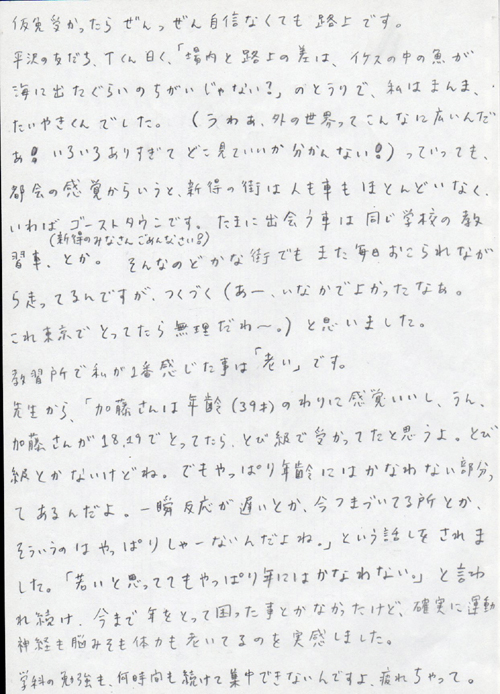 仮免受かったら ぜんっぜん自信なくても 路上です。
平沢の友だち、Tくん曰く、「場内と路上の差は、イケスの中の魚が
海に出たぐらいのちがいじゃない?」のとうりで、私はまんま、
たいやきくんでした。(うわぁ、外の世界ってこんなに広いんだ
ぁ!いろいろありすぎて どこ見ていいか分かんない!)っていっても、
都会の感覚からいうと、新得の街は人も車もほとんどいなく、
いわば ゴーストタウンです。たまに出会う車は同じ学校の教
(新得のみなさん ごめんなさい!)
習車、とか。そんなのどかな街でも また毎日おこられなが
ら走ってるんですが、つくづく(あー、いなかでよかったなぁ。
これ東京でとってたら無理だわ〜。)と思いました。
教習所で私が1番感じた事は「老い」です。
先生から、「加藤さんは年齢(39才)のわりに感覚いいし、うん、
加藤さんが18、19でとってたら、とび級で受かってたと思うよ。とび
級とかないけどね。でもやっぱり年齢にはかなわない部分っ
てあるんだよ。一瞬反応が遅いとか、今つまづいてる所とか、
そういうのはやっぱりしゃーないんだよね。」という話しをされま
した。「若いと思っててもやっぱり年にはかなわない。」と言わ
れ続け、今まで年をとって困った事とかなかったけど、確実に運動
神経も脳みそも体力も老いてるのを実感しました。
学科の勉強も、何時間も続けて集中できないんですよ、疲れちゃって。